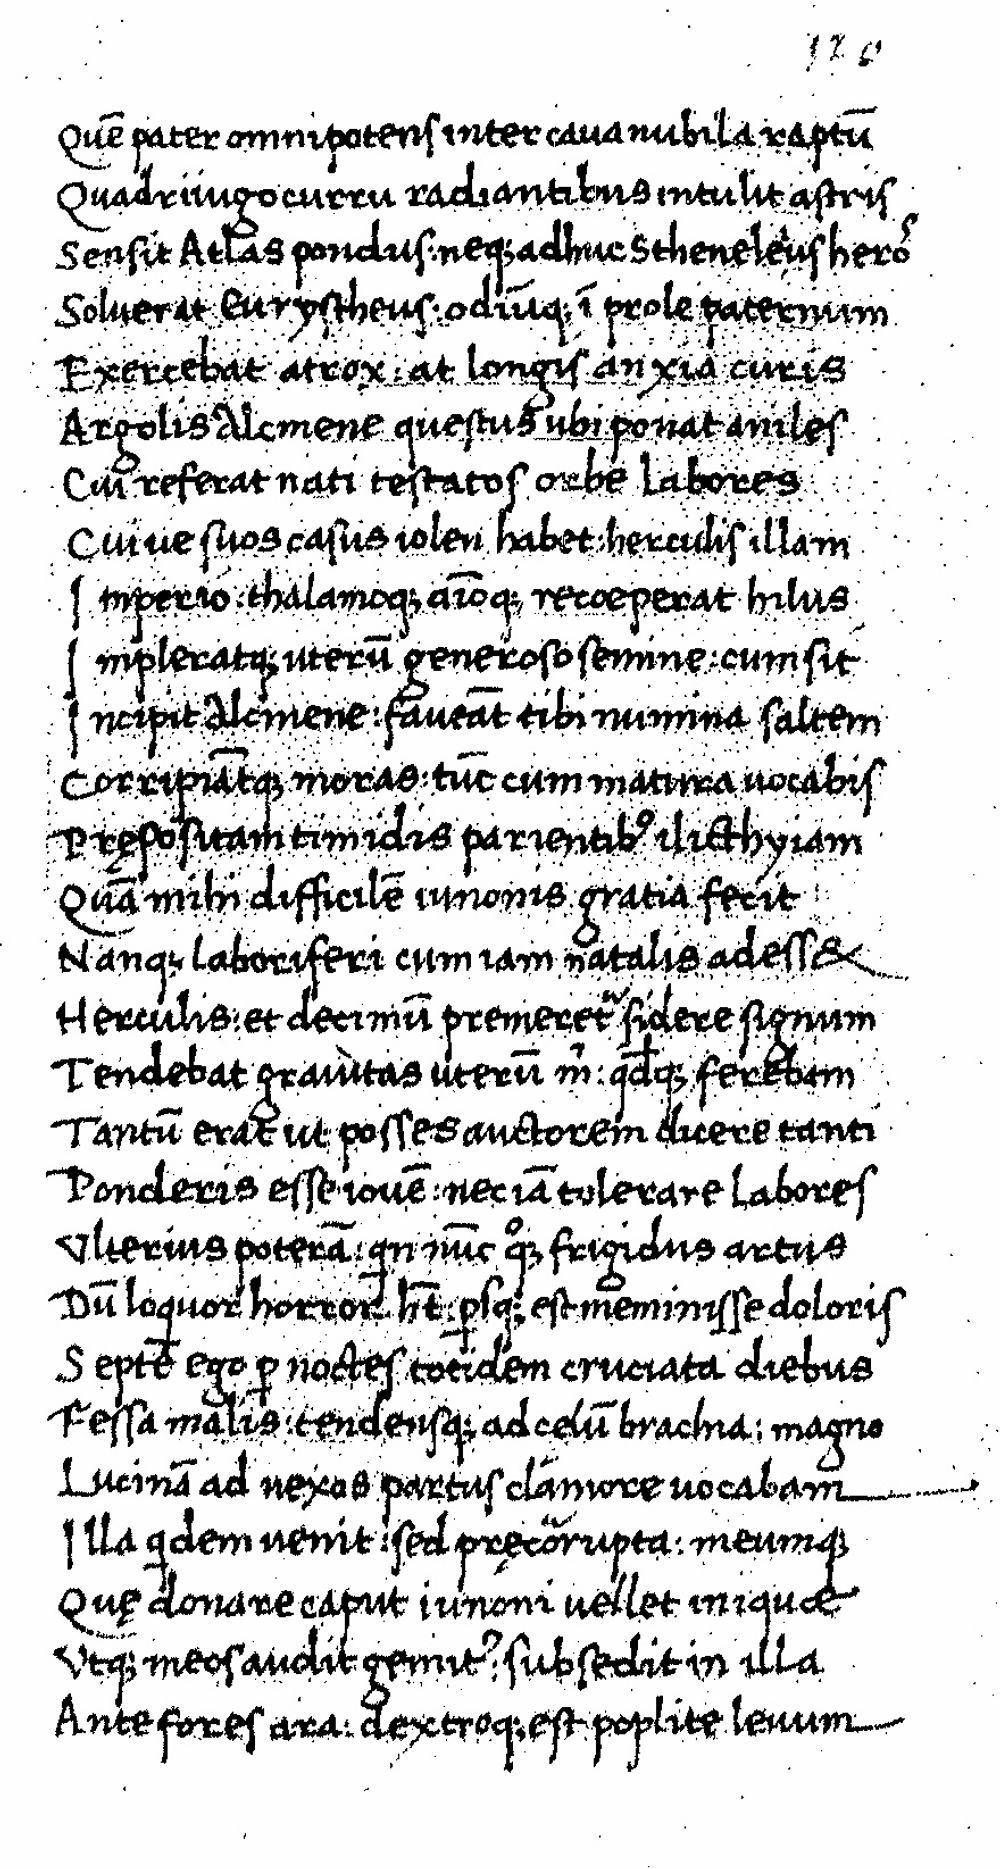 120
Quē pater omnipotens inter caua nubila raptū
Quadriiugo curru radiantibus intulit astris
Sensit Atlas pondus: neq; adhuc Stheneleius heros
Soluerat Eurystheus: odiūq; ī prole paternum
Exercebat atrox: at longis anxia curis
Argolis Alcmene questus ubi ponat aniles
Cui referat nati testatos orbe labores
Cui ue suos casus iolen habet: herculis illam
Imperio: thalamoq; aīoq; recoeperat hilus
Impleratq; uterū generoso semine: cum sic
Incipit Alcmene: faueāt tibi numina saltem
Corripiātq; moras: tūc cum matura uocabis
Prępositam timidis parientib⁹ ilicthyiam
Quā mihi difficilē iunonis gratia fecit
Nanq; laboriferi cum iam natalis adesset
Herculis: et decimū premeret̃ sidere signum
Tendebat grauitas uterū m̄: qd̄q; ferebam
Tantū erat ut posses auctorem dicere tanti
Ponderis esse iouē: nec iā tolerare labores
Vlterius poterā: qn nūc qͦq; frigidus artus
Dū loquor horror h̄t: p̱sq; est meminisse doloris
Septē ego p̱ noctes totidem cruciata diebus
Fessa malis: tendensq; ad celū brachia: magno
Lucinā ad nexos partus clamore uocabam
Illa qdem uenit: sed pręcorrupta: meumq;
Quę donare caput iunoni uellet iniquae
Vtq; meos audit gemit⁹: subsedit in illa
Ante fores ara: dextroq; est poplite leuum